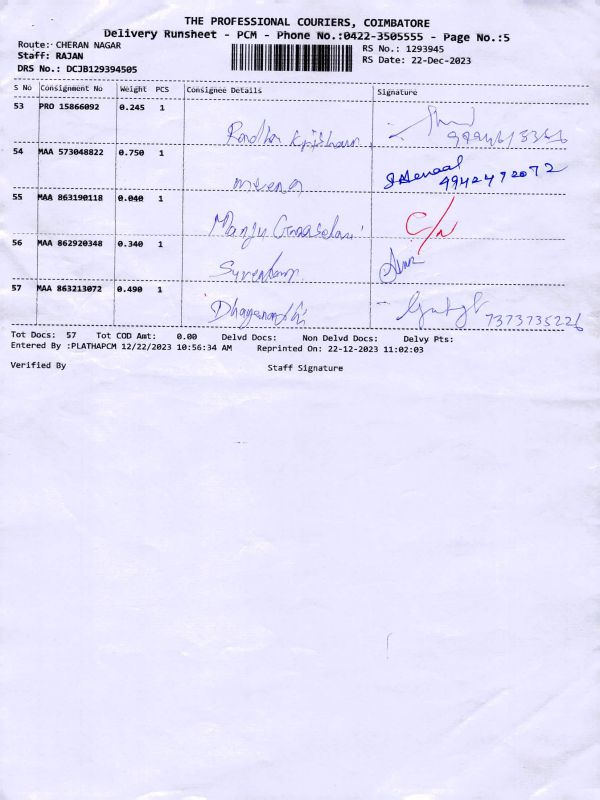 THE PROFESSIONAL COURIERS, COIMBATORE
Delivery Runsheet - PCM - Phone No.:0422-3505555 - Page No.:5
Route: CHERAN NAGAR
RS No.: 1293945
Staff: RAJAN
RS Date: 22-Dec-2023
DRS No.: DCJB129394505
S No Consignment No Weight PCS Consignee Details Signature
53 PRO 15866092 0.245 1
Radha Krishnan
54 MAA 573048822 0.750 1
meena
9942472072
55 MAA 863190118 0.040 1
Manju
C/N
56 MAA 862920348 0.340 1
57 MAA 863213072 0.490 1
7373735226
Tot Docs: 57 Tot COD Amt: 0.00 Delvd Docs: Non Delvd Docs: Delvy Pts:
Entered By :PLATHAPCM 12/22/2023 10:56:34 AM Reprinted On: 22-12-2023 11:02:03
Verified By Staff Signature